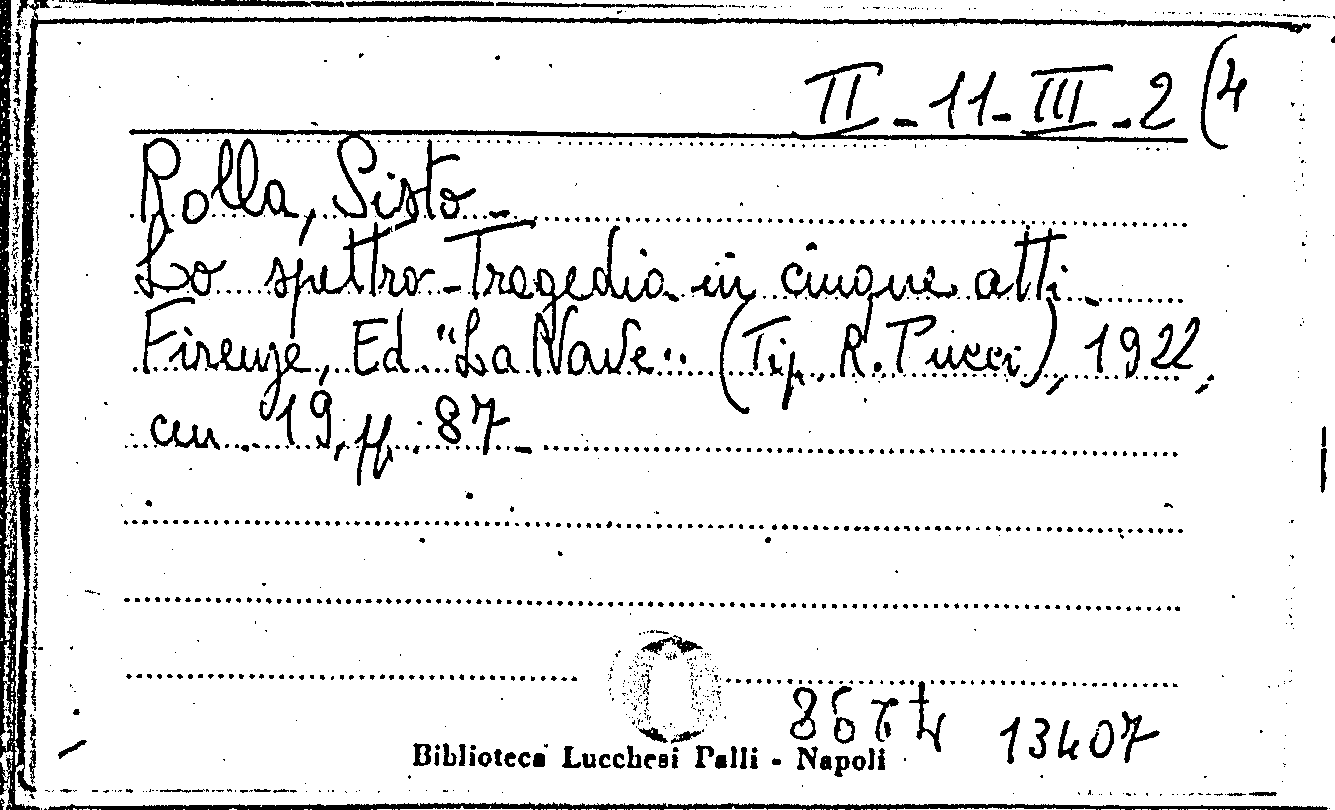 II - 11 - III - 2 (4
Rolla, Sisto -
Lo spettro - Tragedia in cinque atti -
Firenze, Ed. "La Nave" (Tip. R. Pucci), 1922,
cm. 19, pp. 87 -
13407
Biblioteca Lucchesi Palli - Napoli